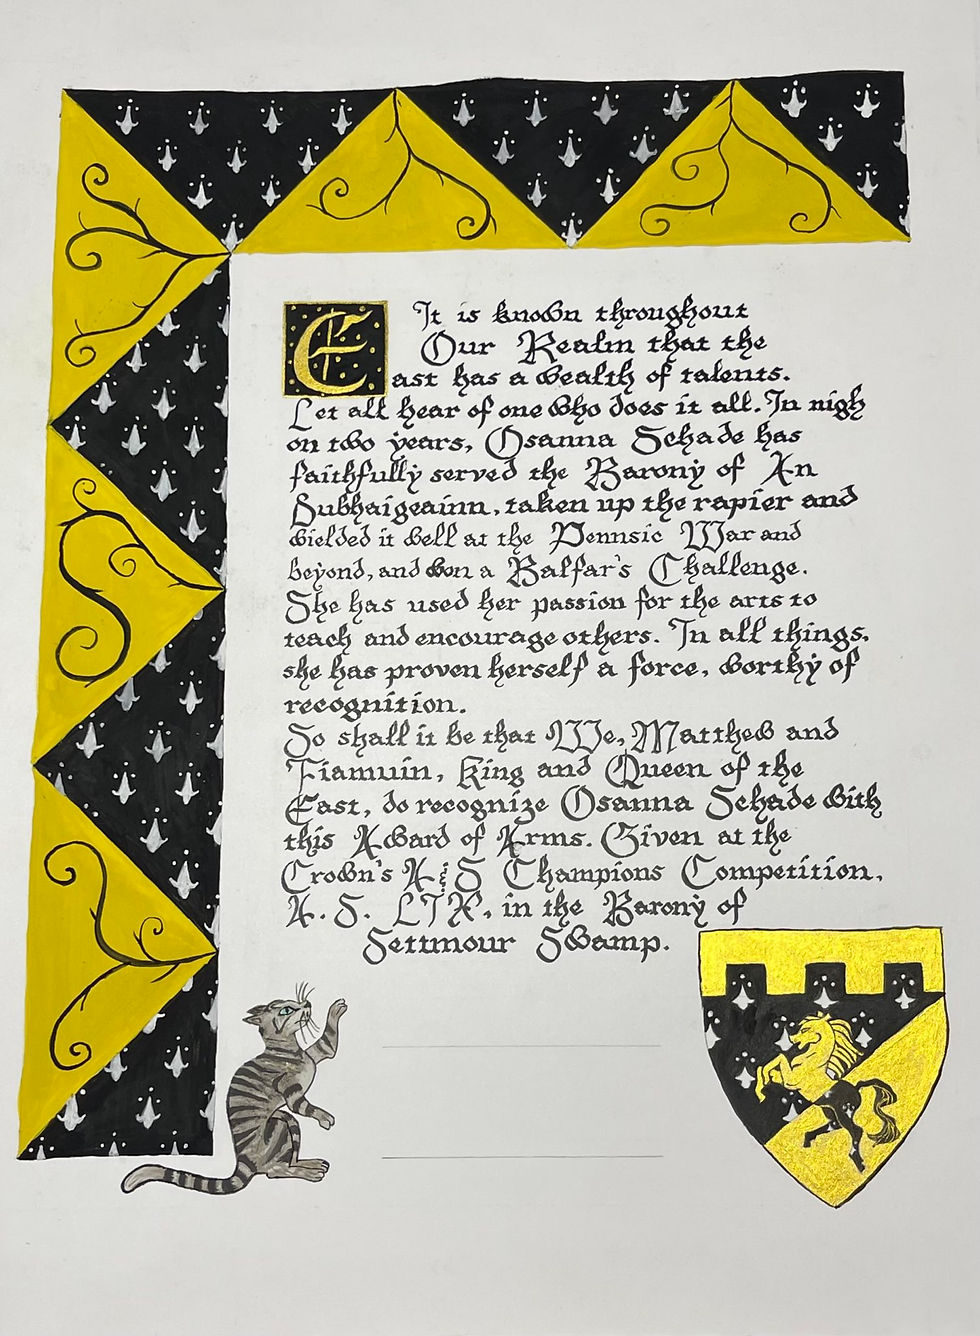 It is known throughout
Our Realm that the
East has a wealth of talents.
Let all hear of one who does it all. In nigh
on two years, Osanna Schade has
faithfully served the Barony of An
Dubhaigeainn, taken up the rapier and
wielded it well at the Pennsic War and
beyond, and won a Balfar's Challenge.
She has used her passion for the arts to
teach and encourage others. In all things,
she has proven herself a force, worthy of
recognition.
So shall it be that We, Matthew and
Fiamuin, King and Queen of the
East, do recognize Osanna Schade with
this Award of Arms. Given at the
Crown's A&S Champions Competition,
A. S. LIX, in the Barony of
Settmour Swamp.